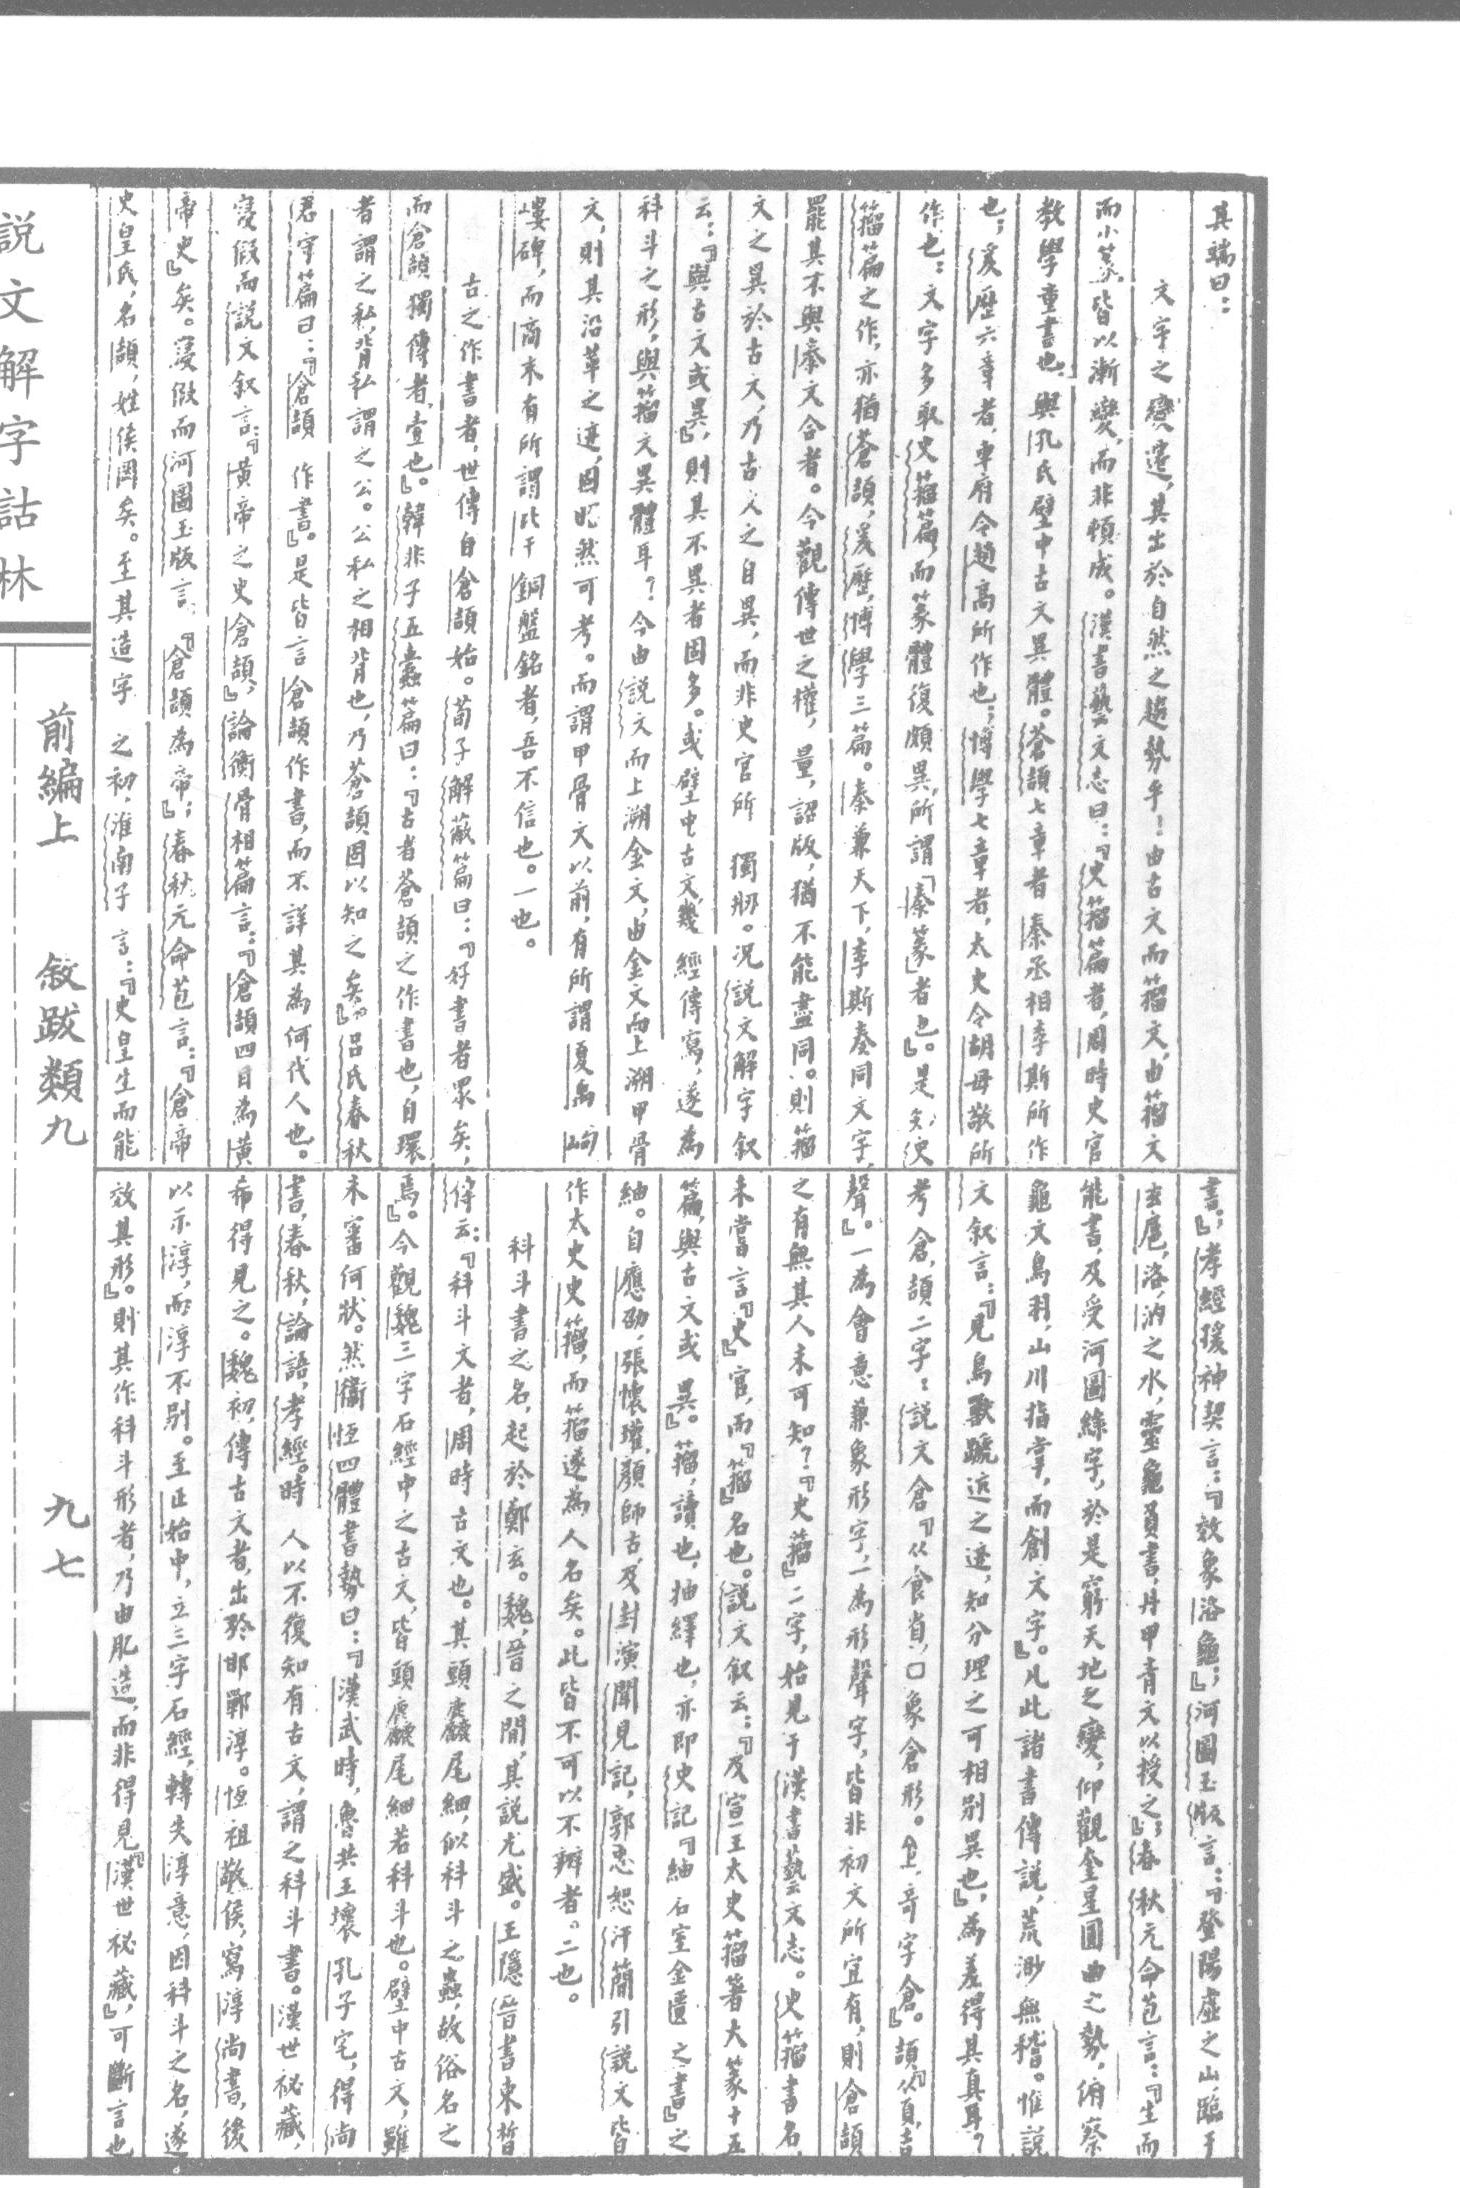 其端曰：
文字之變遷，其出於自然之趨勢乎！由古文而籀文，由籀文
而小篆，皆以漸變，而非頓成。漢書藝文志曰：『史籀篇者，周時史官
教學童書也，與孔氏壁中古文異體。蒼頡七章者，秦丞相李斯所作
也；爰歷六章者，車府令趙高所作也；博學七章者，太史令胡母敬所
作也：文字多取史籀篇，而篆體復頗異，所謂「秦篆」者也。』是知史
籀篇之作，亦猶蒼頡，爰歷，博學三篇。秦兼天下，李斯奏同文字，
罷其不與秦文合者。今觀傳世之權，量，詔版，猶不能盡同。則籀
文之異於古文，乃古人之自異，而非史官所獨刱。況說文解字叙
云：『與古文或異』，則其不異者固多。或壁中古文，幾經傳寫，遂為
科斗之形，與籀文異體耳？今由說文而上溯金文，由金文而上溯甲骨
文，則其沿革之迹，固昭然可考。而謂甲骨文以前，有所謂夏禹岣
嶁碑，而商末有所謂比干銅盤銘者，吾不信也。一也。
古之作書者，世傳自倉頡始。荀子解蔽篇曰：『好書者眾矣，
而倉頡獨傳者，壹也。』韓非子五蠹篇曰：『古者蒼頡之作書也，自環
者謂之私，背私謂之公。公私之相背也，乃蒼頡固以知之矣。』呂氏春秋
君守篇曰：『倉頡作書』。是皆言倉頡作書，而不詳其為何代人也。
寖假而說文叙言：『黃帝之史倉頡』，論衡骨相篇言：『倉頡四目為黃
帝史』矣。寖假而河圖玉版言『倉頡為帝』；春秋元命苞言：『倉帝
史皇氏，名頡，姓侯岡矣。至其造字之初，淮南子言：『史皇生而能
書。』；孝經援神契言：『效象洛龜』；河圖玉版言：『登陽虛之山，臨于
玄扈，洛，汭之水，靈龜負書丹甲青文以授之』；春秋元命苞言：『生而
能書，及受河圖綠字，於是窮天地之變，仰觀奎星圜曲之勢，俯察
龜文鳥羽，山川指掌，而創文字。』凡此諸書傳說，荒渺無稽。惟說
文叙言：『見鳥獸蹏迒之迹，知分理之可相別異也』，為差得其真耳？
考倉，頡二字：說文倉『从食省，口象倉形。仺，奇字倉。』頡『从頁，吉
聲』。一為會意兼象形字，一為形聲字，皆非初文所宜有，則倉頡
之有無其人未可知？『史籀』二字，始見于漢書藝文志。史籀書名，
未嘗言『史』官，而『籀』名也。說文叙云：『及宣王太史籀著大篆十五
篇，與古文或異。』籀，讀也，抽繹也，亦即史記『紬石室金匱之書』之
紬。自應劭，張懷瓘，顏師古，及封演聞見記，郭忠恕汗簡引說文皆
作太史史籀，而籀遂為人名矣。此皆不可以不辨者。二也。
科斗書之名，起於鄭玄。魏，晉之間，其說尤盛。王隱晉書束皙
傳云：『科斗文者，周時古文也。其頭麤尾細，似科斗之蟲，故俗名之
焉。』今觀魏三字石經中之古文，皆頭麤尾細若科斗也。壁中古文，雖
未審何狀。然衞恆四體書勢曰：『漢武時，魯共王壞孔子宅，得尚
書，春秋，論語，孝經。時人以不復知有古文，謂之科斗書。漢世祕藏，
希得見之。魏初，傳古文者，出於邯鄲淳。恆祖敬侯，寫淳尚書，後
以示淳，而淳不別。至正始中，立三字石經，轉失淳意，因科斗之名，遂
效其形』。則其作科斗形者，乃由肊造，而非得見『漢世祕藏』，可斷言也
說文解字詁林
前編上　敘跋類九
九七